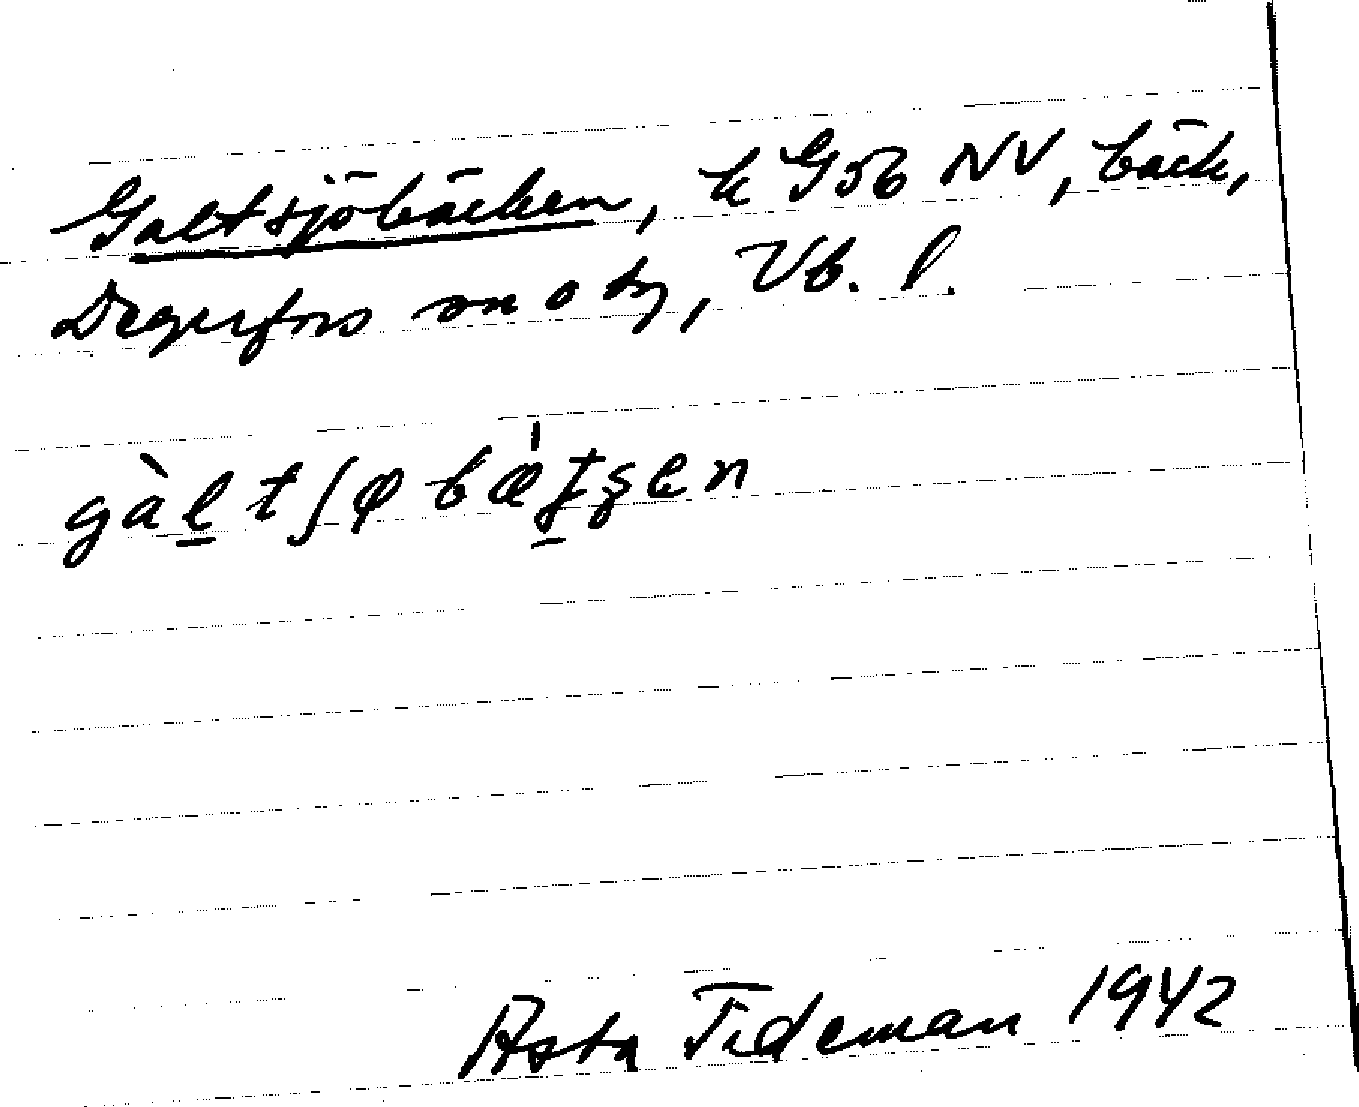 Galtsjöbäcken, k G56 NV, bäck,
Degerfors sn o tg, Vb. l.
gàltʃøbæ̍tʂen
Asta Tideman 1942